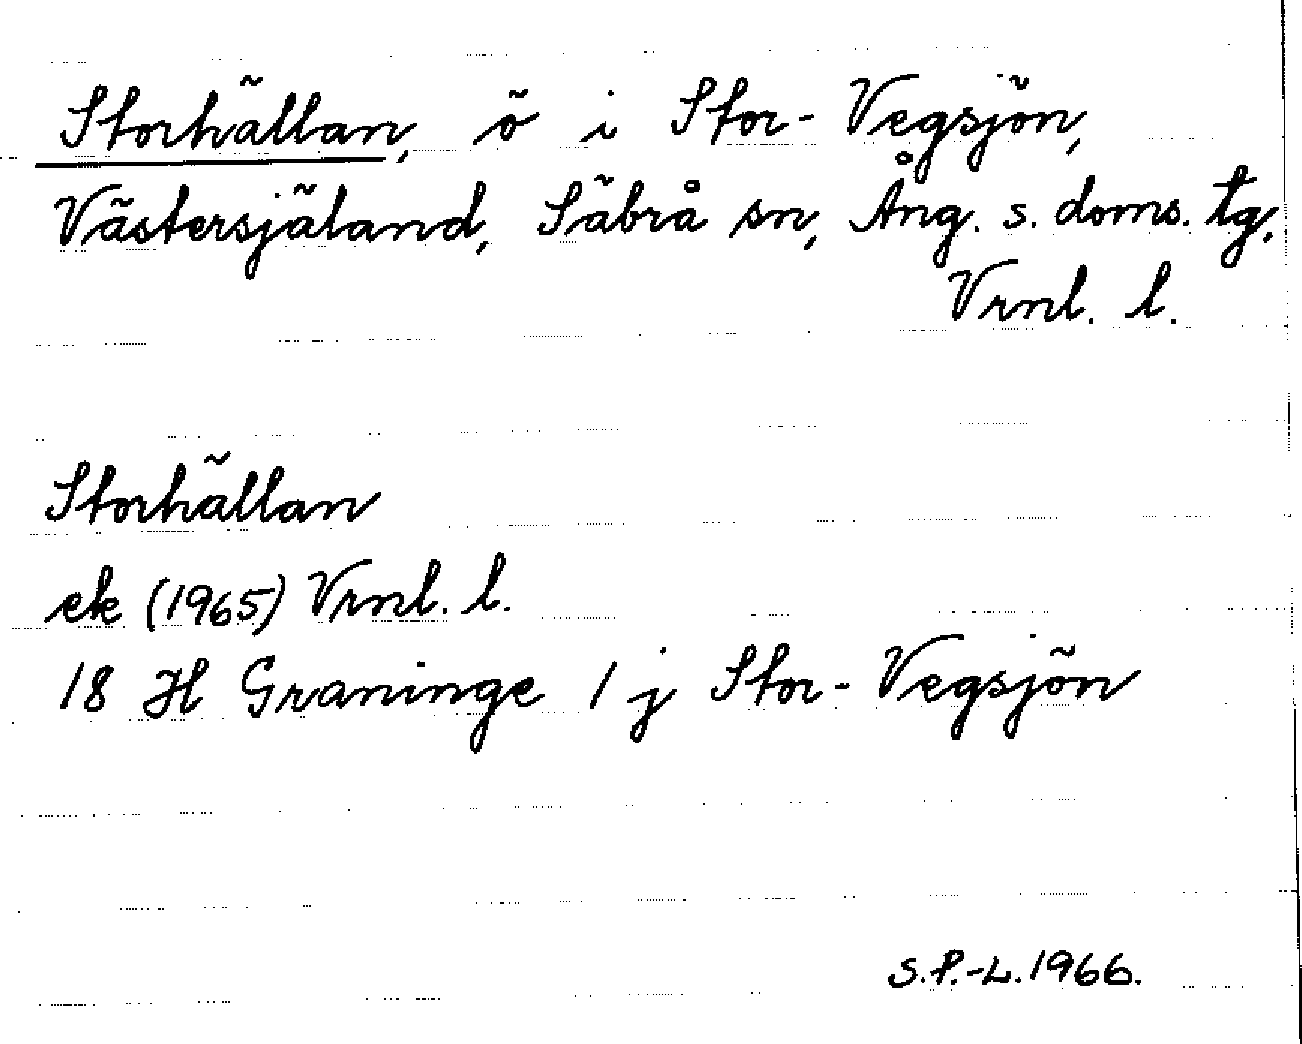 Storhällan, ö i Stor-Vegsjön,
Västersjäland, Säbrå sn, Ång. s. doms. tg,
Vrnl. l.
Storhällan
ek (1965) Vrnl. l.
18 H Graninge 1 j Stor-Vegsjön
S.P.-L. 1966.